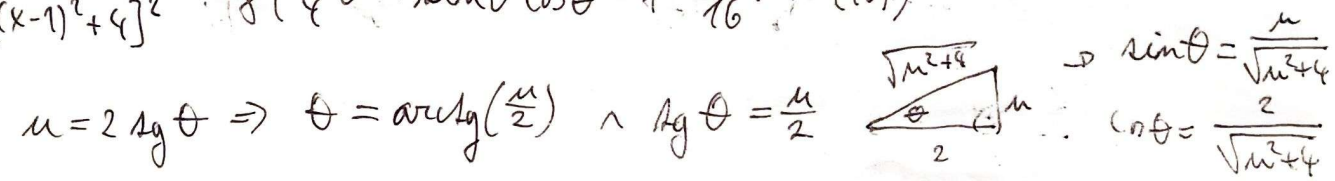 (x-1)²+4]²
16
u = 2 tg θ ⇒ θ = arctg(u/2) ∧ tg θ = u/2
√u²+4
θ
u
2
→ sin θ = u/√u²+4
∴ cos θ = 2/√u²+4